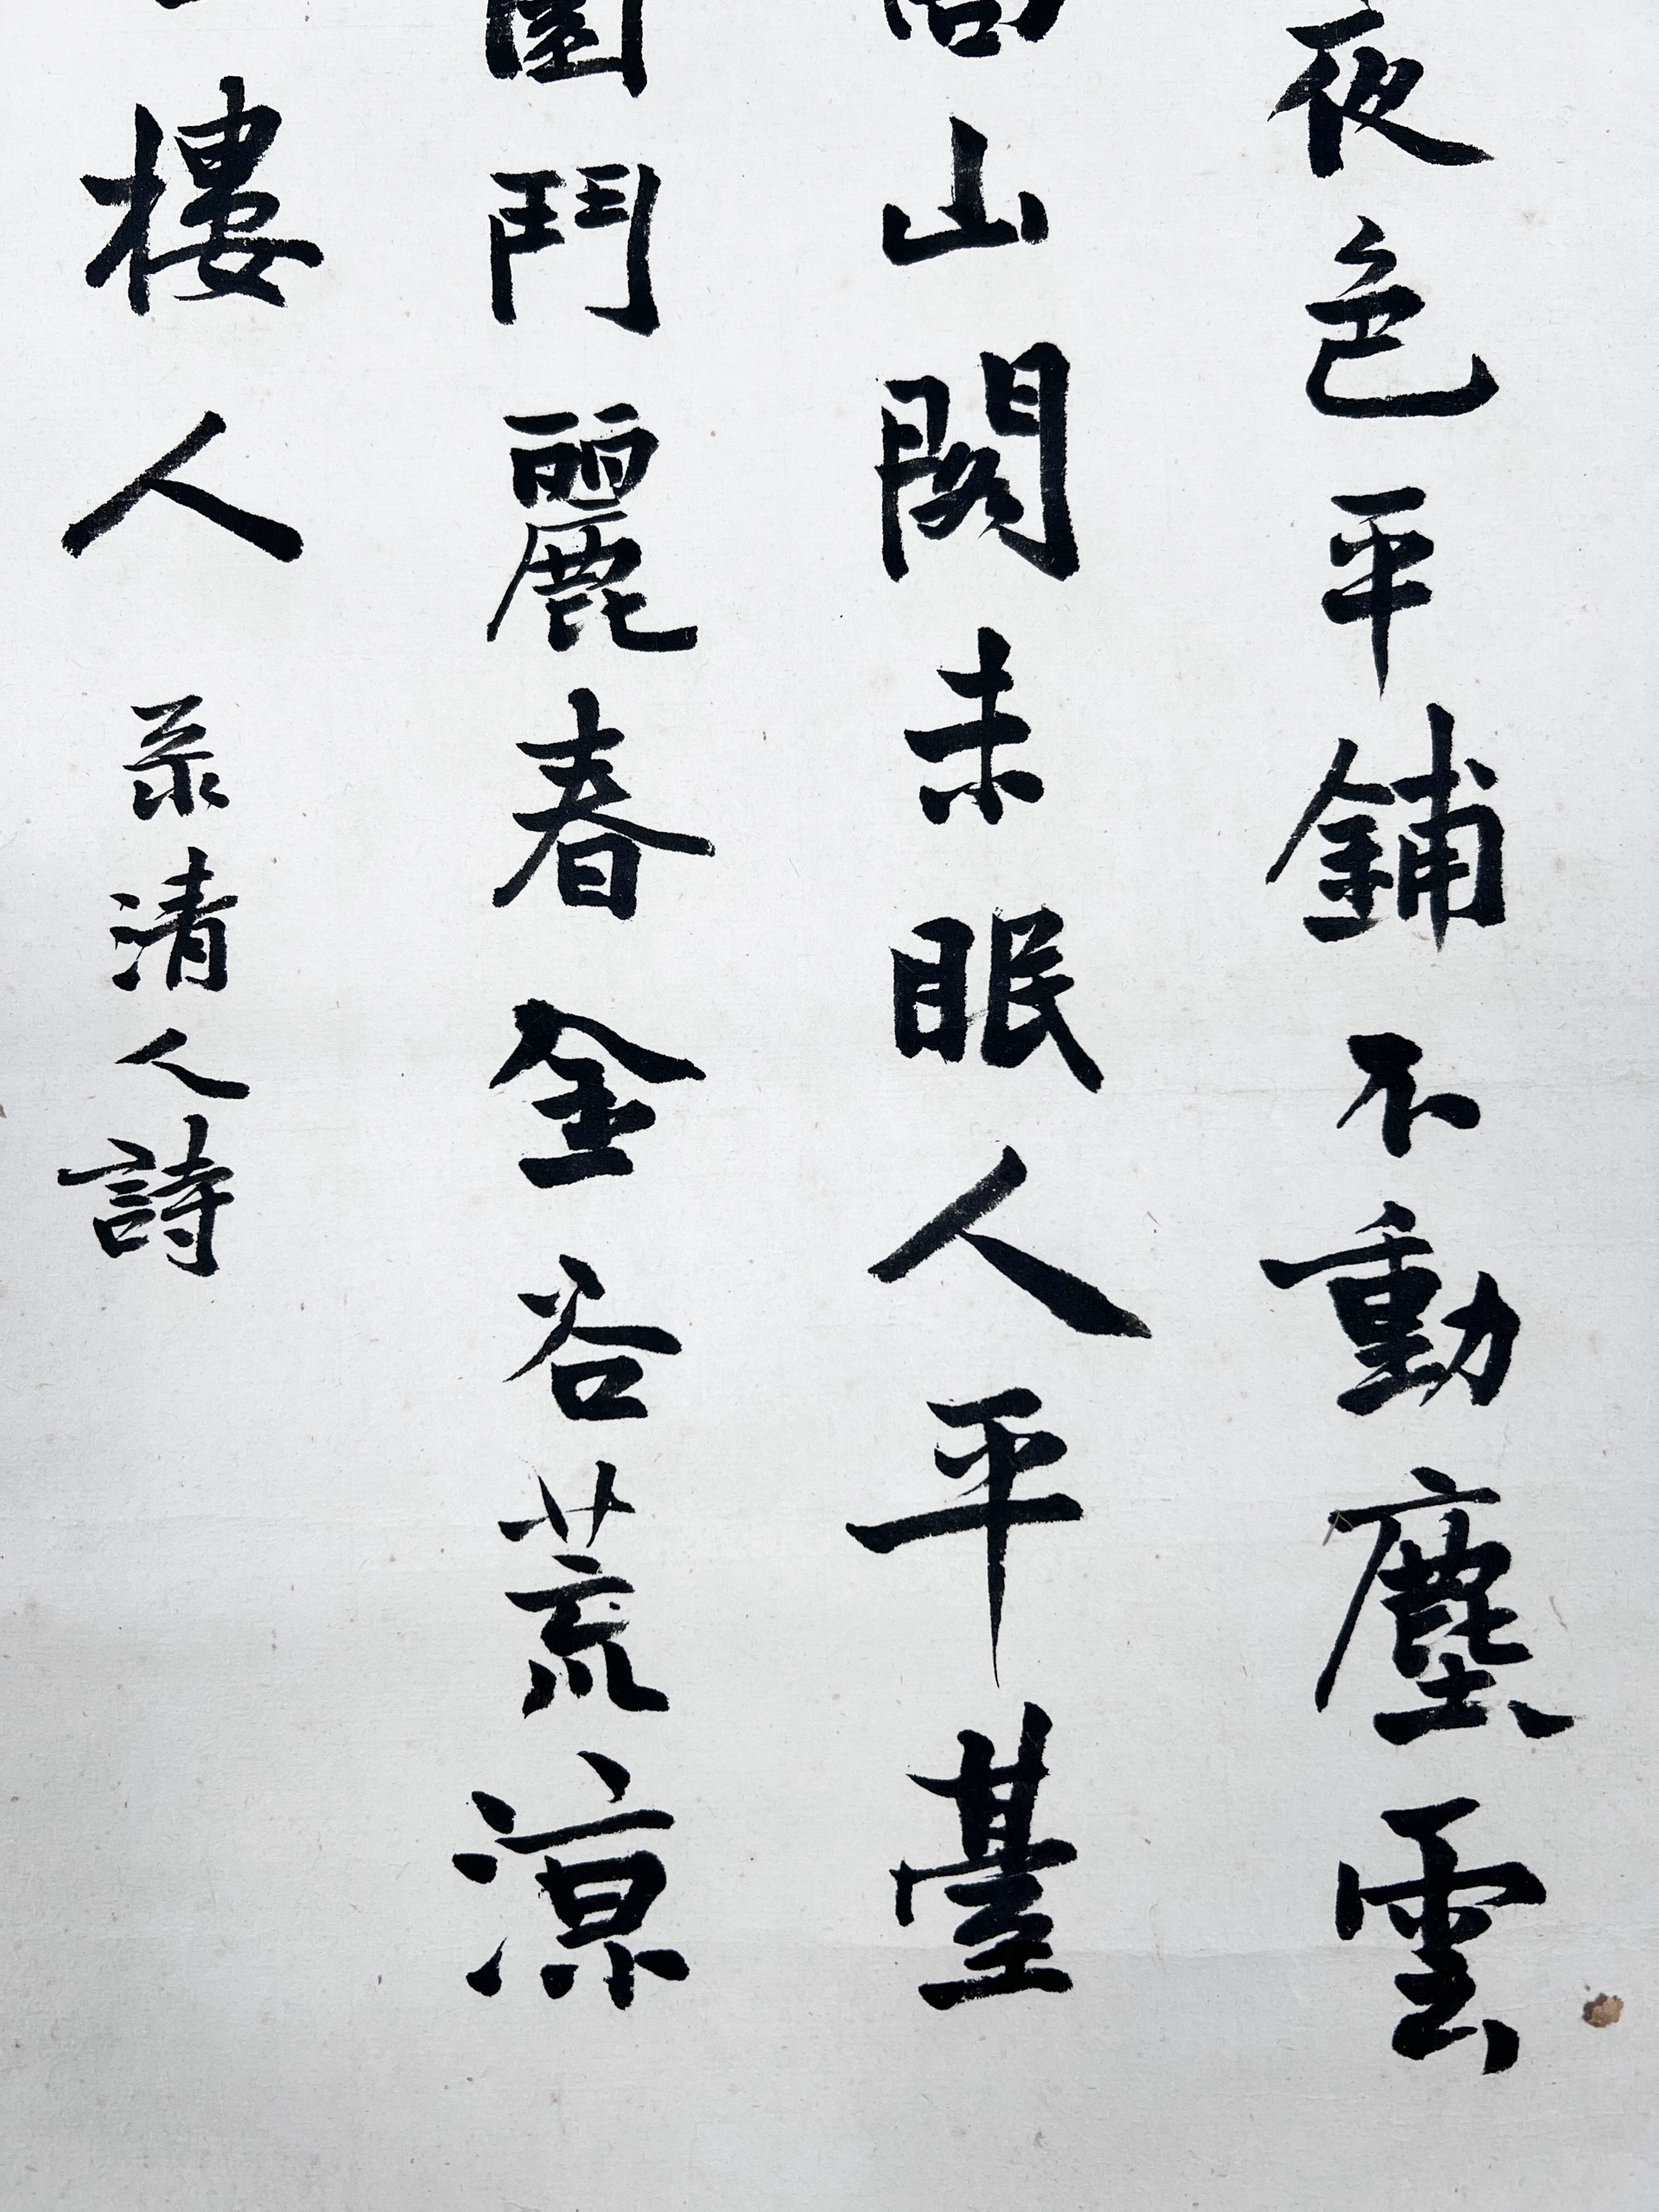 夜色平鋪不動塵雲
山閣未眠人平臺
園鬥麗春金谷荒涼
樓人
录清人詩